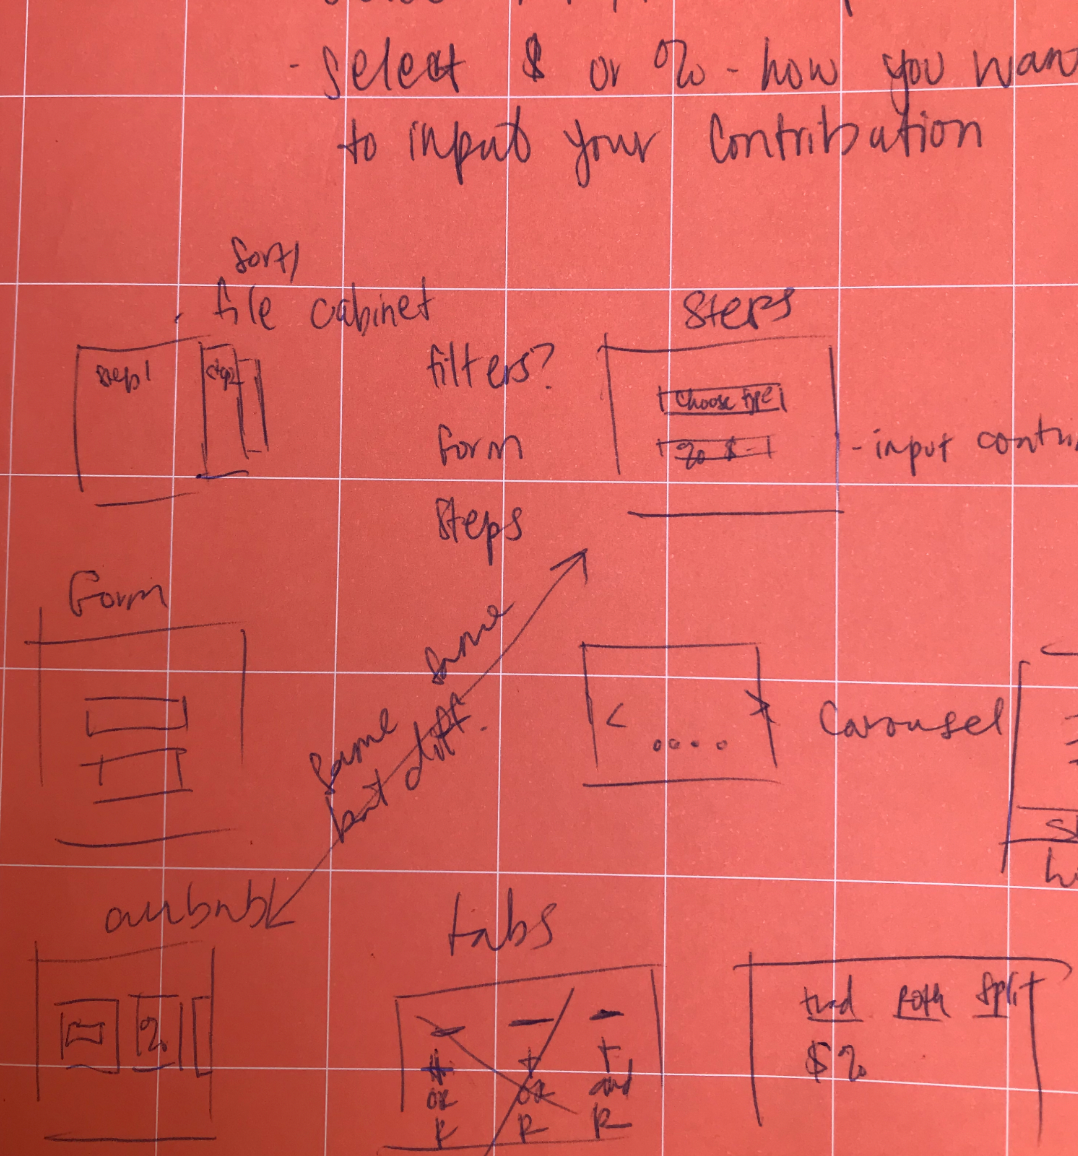 - Select $ or % - how you want
to input your contribution
Sort/
file cabinet
Steps
step1
step2
filters?
Choose type
Form
% $
- input contri
Steps
Form
same
same
but diff.
< >
Carousel
airbnb
tabs
trad Roth Split
$ %
%
$
or
R
T
or
R
T
and
R